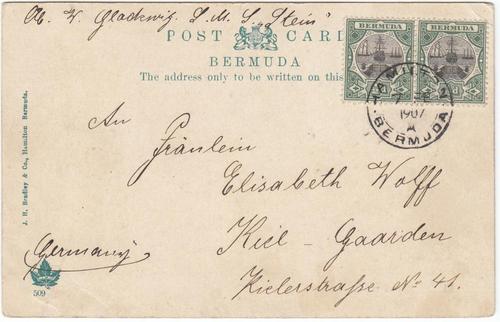 Ab. W. Gladewig. S. M. S. „Stein"
POST CARD
BERMUDA
The address only to be written on this
BERMUDA
BERMUDA
HAMILTON
1907
A
BERMUDA
An
Fräulein
Elisabeth Wolff
Kiel - Gaarden
Kielerstraße No 41.
Germany
J. H. Bradley & Co., Hamilton Bermuda.
509